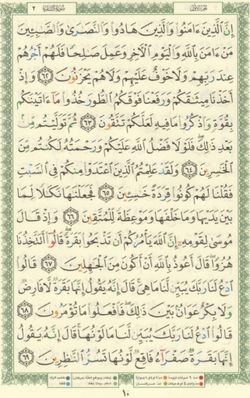 إِنَّ ٱلَّذِينَ ءَامَنُوا۟ وَٱلَّذِينَ هَادُوا۟ وَٱلنَّصَٰرَىٰ وَٱلصَّٰبِـِٔينَ
مَنْ ءَامَنَ بِٱللَّهِ وَٱلْيَوْمِ ٱلْـَٔاخِرِ وَعَمِلَ صَٰلِحًا فَلَهُمْ أَجْرُهُمْ
عِندَ رَبِّهِمْ وَلَا خَوْفٌ عَلَيْهِمْ وَلَا هُمْ يَحْزَنُونَ ٦٢ وَإِذْ
أَخَذْنَا مِيثَٰقَكُمْ وَرَفَعْنَا فَوْقَكُمُ ٱلطُّورَ خُذُوا۟ مَآ ءَاتَيْنَٰكُم
بِقُوَّةٍ وَٱذْكُرُوا۟ مَا فِيهِ لَعَلَّكُمْ تَتَّقُونَ ٦٣ ثُمَّ تَوَلَّيْتُم مِّنۢ
بَعْدِ ذَٰلِكَ فَلَوْلَا فَضْلُ ٱللَّهِ عَلَيْكُمْ وَرَحْمَتُهُۥ لَكُنتُم مِّنَ
ٱلْخَٰسِرِينَ ٦٤ وَلَقَدْ عَلِمْتُمُ ٱلَّذِينَ ٱعْتَدَوْا۟ مِنكُمْ فِى ٱلسَّبْتِ
فَقُلْنَا لَهُمْ كُونُوا۟ قِرَدَةً خَٰسِـِٔينَ ٦٥ فَجَعَلْنَٰهَا نَكَٰلًا لِّمَا
بَيْنَ يَدَيْهَا وَمَا خَلْفَهَا وَمَوْعِظَةً لِّلْمُتَّقِينَ ٦٦ وَإِذْ قَالَ
مُوسَىٰ لِقَوْمِهِۦٓ إِنَّ ٱللَّهَ يَأْمُرُكُمْ أَن تَذْبَحُوا۟ بَقَرَةً قَالُوٓا۟ أَتَتَّخِذُنَا
هُزُوًا قَالَ أَعُوذُ بِٱللَّهِ أَنْ أَكُونَ مِنَ ٱلْجَٰهِلِينَ ٦٧ قَالُوا۟
ٱدْعُ لَنَا رَبَّكَ يُبَيِّن لَّنَا مَا هِىَ قَالَ إِنَّهُۥ يَقُولُ إِنَّهَا بَقَرَةٌ لَّا فَارِضٌ
وَلَا بِكْرٌ عَوَانٌۢ بَيْنَ ذَٰلِكَ فَٱفْعَلُوا۟ مَا تُؤْمَرُونَ ٦٨
قَالُوا۟ ٱدْعُ لَنَا رَبَّكَ يُبَيِّن لَّنَا مَا لَوْنُهَا قَالَ إِنَّهُۥ يَقُولُ
إِنَّهَا بَقَرَةٌ صَفْرَآءُ فَاقِعٌ لَّوْنُهَا تَسُرُّ ٱلنَّٰظِرِينَ ٦٩
١٠